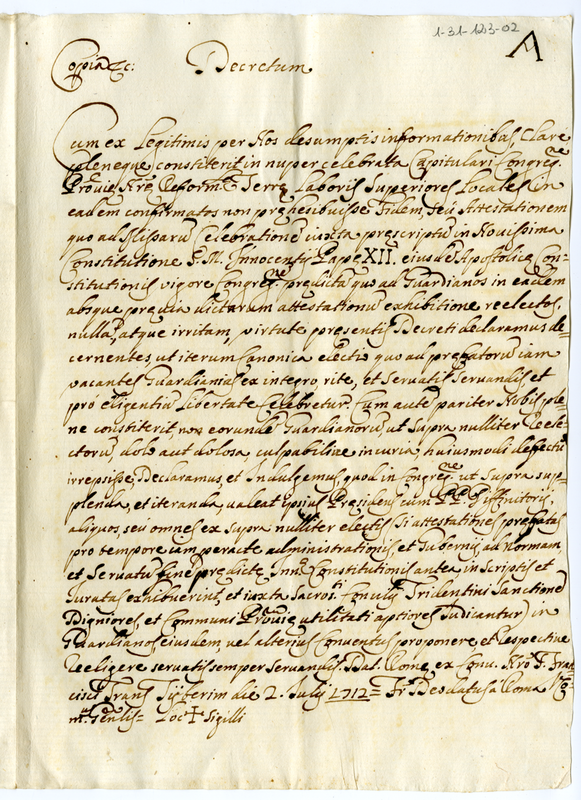 1-31-123-02
A
Copia &c: Decretum
Cum ex Legitimis per Nos desumptis informationibus, Clare
pleneque constiterit in nuper celebrata Capitulari Congreg.ne
Prouię Nrę Reform.tę Terrę Laboris Superiores Locales in
eadem confirmatos non pręhibuisse Fidem, seu Attestationem
quo ad Missarũ Celebrationẽ iuxta prescriptũ in Nouissima
Constitutione F. M. Innocentij Papę XII. eiusdẽ Apostolicę Con=
stitutionis vigore Congreg.nẽ predictã quo ad Guardianos in eadem
absque preuia dictarum attestationũ exhibitione reelectos,
nullã, atque irritam, virtute presentis Decreti declaramus de=
cernentes, ut iterum Canonica electio quo ad prefatorũ iam
vacantes Guardianias ex integro, rite, et Seruatis Seruandis et
pro eligentiũ Libertate Celebretur. Cum autẽ pariter Nobis ple=
ne constiterit non eorundẽ Guardianorũ, ut supra nulliter Reele=
ctorũ, dolo aut dolosa, culpabiliue incuria, huiusmodi defectũ
irrepsisse, Declaramus, et Indulgemus, quod in Congreg.ne ut supra sup=
plenda, et iteranda, valeat ipsius Pręsidens cum PP. Diffinitoris,
aliquos, seu omnes ex supra nulliter electis (si attestationes prefatas
pro tempore iam peracte administrationis, et Gubernij ad Normam,
et Seruatũ fine predicte Inn.ę Constitutionis antea in scriptis et
Iuratas exhibuerint, et iuxta Sacros.ti Concilij Tridentini Sanctionẽ
Digniores, et Communi Prouię utilitati aptiores Iudicantur) in
Guardianos eiusdem, vel alterius Conuentus proponere, et respectiue
Reeligere seruatis semper Seruandis. Dat. Romę ex Conu. Nro S. Fran=
cisci Trans Tyberim die 2. Iulij 1712= Fr. Deodatus a Roma
Gen.lis= Loc. + Sigilli